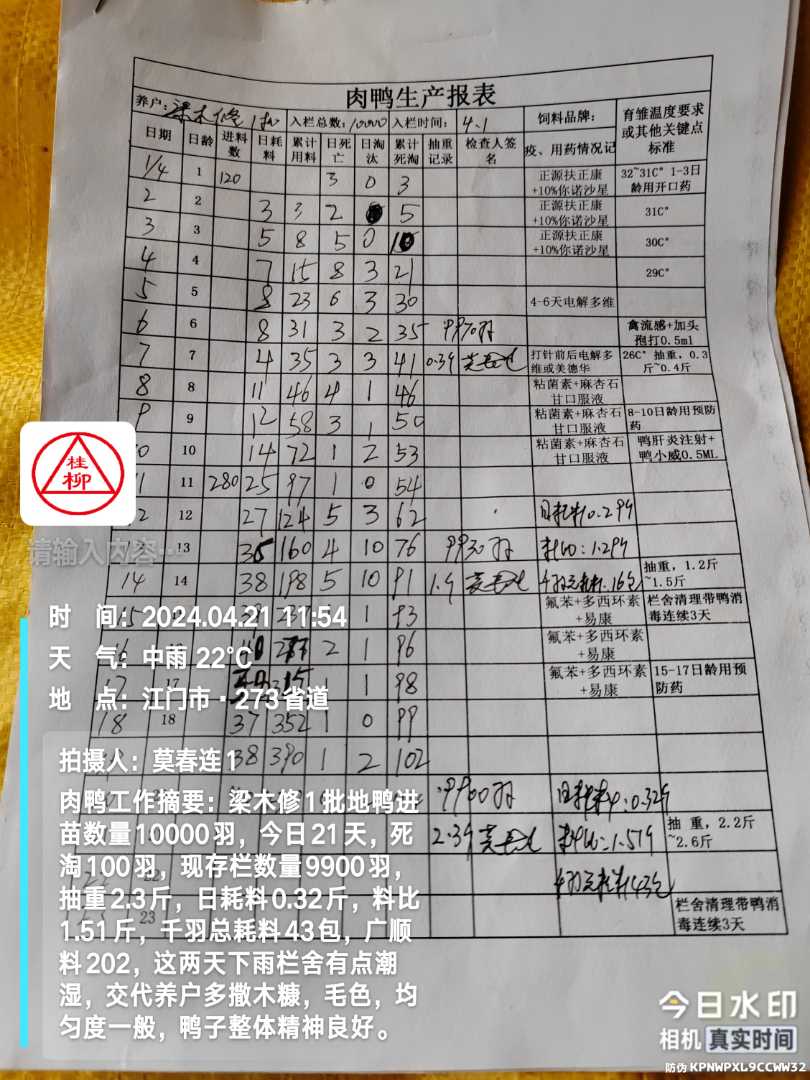 肉鸭生产报表
养户: 梁木修1批 入栏总数: 10000 入栏时间: 4.1 饲料品牌: 育雏温度要求或其他关键点标准
日期 日龄 进料数 日耗料 累计用料 日死亡 日淘汰 累计死淘 抽重记录 检查人签名 疫、用药情况记
1/4 1 120 3 0 3 正源扶正康+10%你诺沙星 32~31C° 1-3日龄用开口药
2 2 3 3 2 5 正源扶正康+10%你诺沙星 31C°
3 3 5 8 5 0 10 正源扶正康+10%你诺沙星 30C°
4 4 7 15 8 3 21 29C°
5 5 8 23 6 3 30 4-6天电解多维
6 6 8 31 3 2 35 9970羽 禽流感+加头孢打0.5ml
7 7 4 35 3 3 41 0.39 打针前后电解多维或美德华 26C° 抽重,0.3斤~0.4斤
8 8 11 46 4 1 46 粘菌素+麻杏石甘口服液
9 9 12 58 3 1 50 粘菌素+麻杏石甘口服液 8-10日龄用预防药
10 10 14 72 1 2 53 粘菌素+麻杏石甘口服液 鸭肝炎注射+鸭小威0.5ML
11 11 280 25 97 1 0 54
12 12 27 124 5 3 62 日耗料0.29斤
13 13 36 160 4 10 76 9930羽 料比:1.29斤
14 14 38 198 5 10 91 1.9 千羽总耗料.16包 抽重,1.2斤~1.5斤
15 1 93 氟苯+多西环素+易康 栏舍清理带鸭消毒连续3天
16 2 1 96 氟苯+多西环素+易康
17 17 315 1 1 98 氟苯+多西环素+易康 15-17日龄用预防药
18 18 37 352 1 0 99
38 390 1 2 102
9900羽 日耗料:0.32斤
2.39 料比:1.51斤 抽重,2.2斤~2.6斤
千羽总耗料43包
23 栏舍清理带鸭消毒连续3天
桂柳
请输入内容...
时 间: 2024.04.21 11:54
天 气: 中雨 22°C
地 点: 江门市·273省道
拍摄人: 莫春连1
肉鸭工作摘要: 梁木修1批地鸭进
苗数量10000羽,今日21天,死
淘100羽,现存栏数量9900羽,
抽重2.3斤,日耗料0.32斤,料比
1.51斤,千羽总耗料43包,广顺
料202,这两天下雨栏舍有点潮
湿,交代养户多撒木糠,毛色,均
匀度一般,鸭子整体精神良好。
今日水印
相机 真实时间
防伪 KPNWPXL9CCWW32